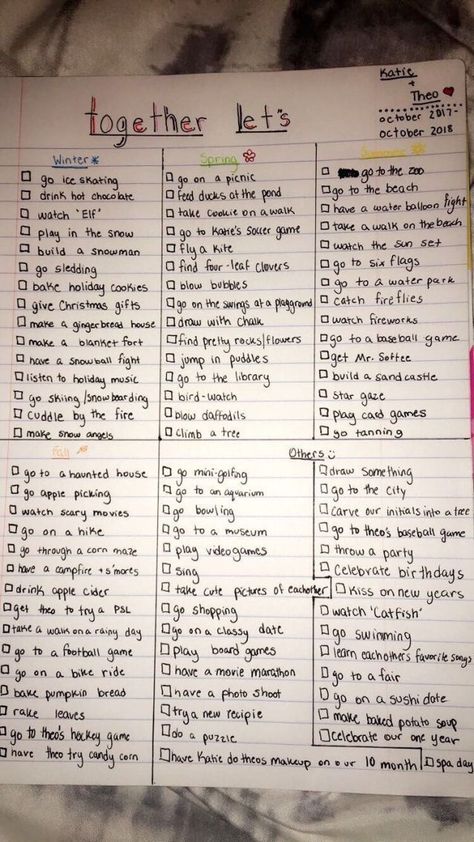 Katie
+
Theo
together let's
october 2017-
october 2018
Winter
go ice skating
drink hot chocolate
watch 'Elf'
play in the snow
build a snowman
go sledding
bake holiday cookies
give Christmas gifts
make a gingerbread house
make a blanket fort
have a snowball fight
listen to holiday music
go skiing/snowboarding
cuddle by the fire
make snow angels
Spring
go on a picnic
feed ducks at the pond
take Cookie on a walk
go to Katie's Soccer game
fly a kite
find four-leaf clovers
blow bubbles
go on the swings at a playground
draw with chalk
find pretty rocks/flowers
jump in puddles
go to the library
bird-watch
blow daffodils
climb a tree
go to the zoo
go to the beach
have a water balloon fight
take a walk on the beach
watch the sun set
go to six flags
go to a water park
catch fireflies
watch fireworks
go to a baseball game
get Mr. Softee
build a sandcastle
star gaze
play card games
go tanning
Fall
go to a haunted house
go apple picking
watch scary movies
go on a hike
go through a corn maze
have a campfire + s'mores
drink apple cider
get theo to try a PSL
take a walk on a rainy day
go to a football game
go on a bike ride
bake pumpkin bread
rake leaves
go to theo's hockey game
have theo try candy corn
Others
go mini-golfing
go to an aquarium
go bowling
go to a museum
play videogames
sing
take cute pictures of eachother
go shopping
go on a classy date
play board games
have a movie marathon
have a photo shoot
try a new recipie
do a puzzle
have Katie do theos makeup on our 10 month
draw something
go to the city
carve our initials into a tree
go to theo's baseball game
throw a party
celebrate birthdays
kiss on new years
watch 'Catfish'
go swimming
learn eachothers favorite songs
go to a fair
go on a sushi date
make baked potato soup
celebrate our one year
spa day